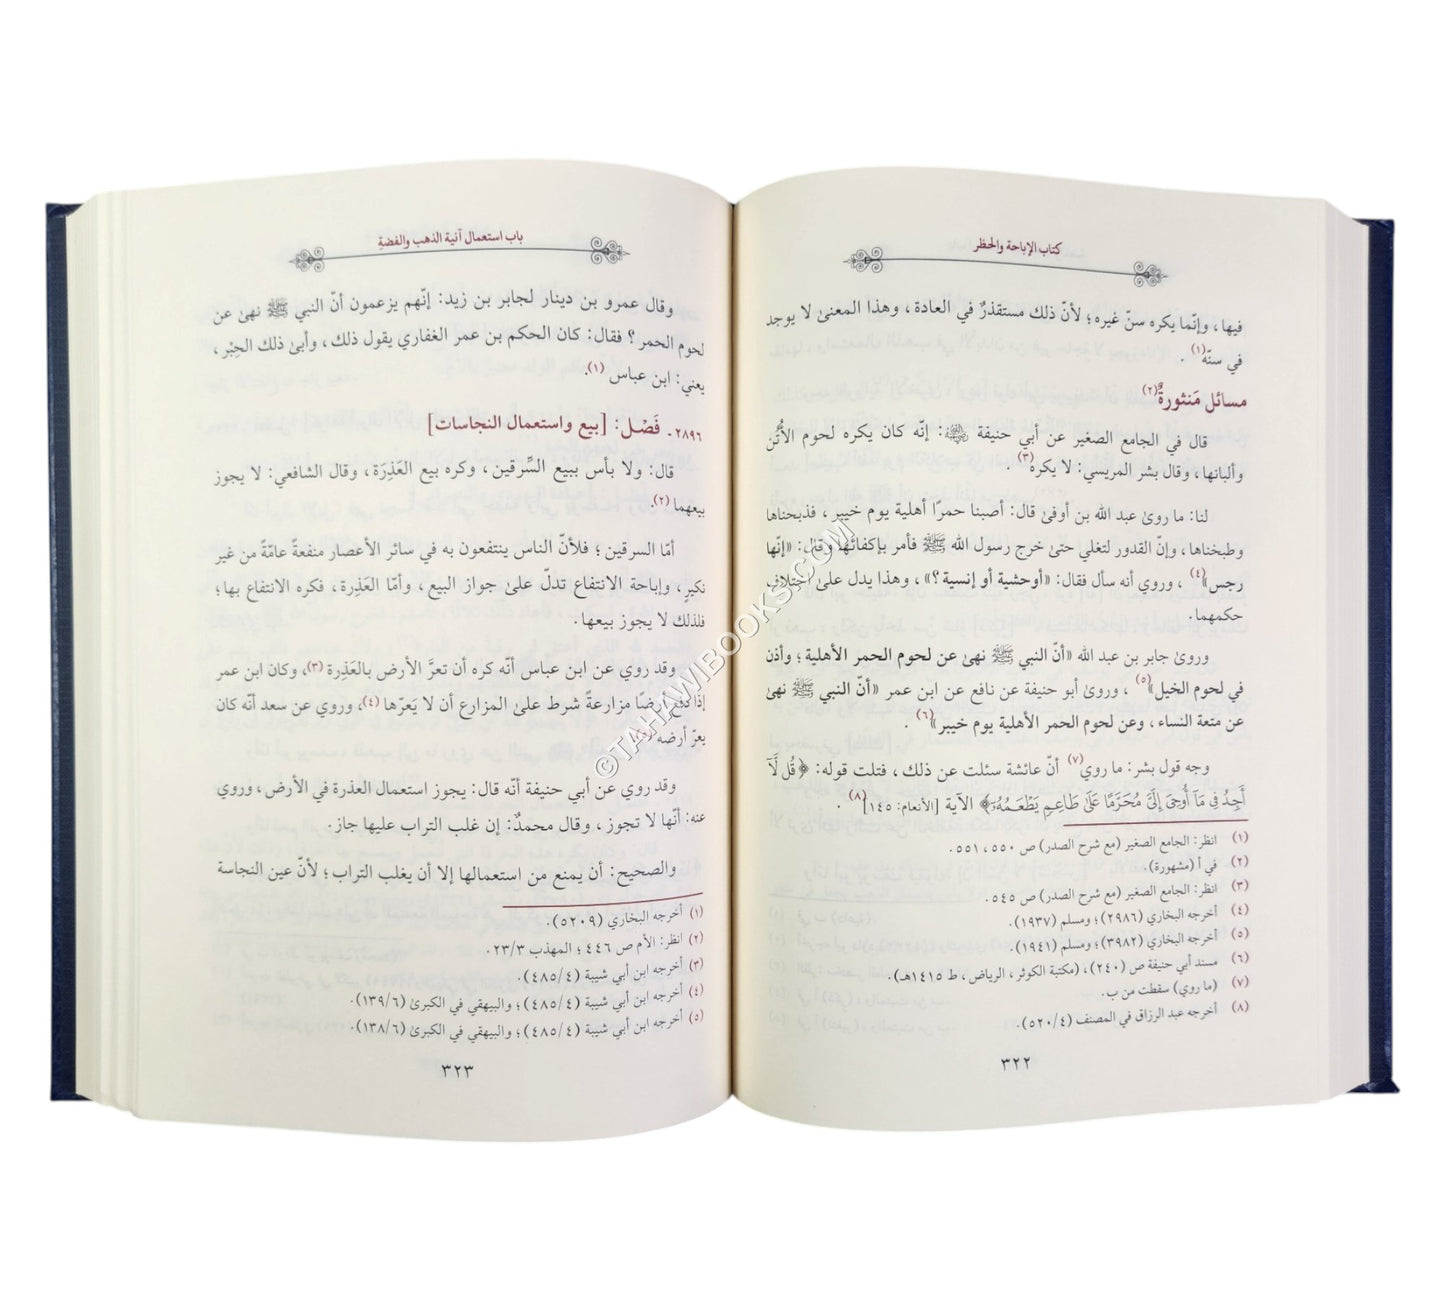 كتاب الإباحة والحظر
فيها، وإنّما يكره سنّ غيره؛ لأنّ ذلك مستقذرٌ في العادة، وهذا المعنىٰ لا يوجد
في سنّه(١).
مسائل مَنثورةٌ(٢)
قال في الجامع الصغير عن أبي حنيفة ﵁: إنّه كان يكره لحوم الأُتُن
وألبانها، وقال بشر المريسي: لا يكره(٣).
لنا: ما روىٰ عبد الله بن أوفىٰ قال: أصبنا حمرًا أهلية يوم خيبر، فذبحناها
وطبخناها، وإنّ القدور لتغلي حتىٰ خرج رسول الله ﷺ فأمر بإكفائها وقال: «إنّها
رجس»(٤)، وروي أنه سأل فقال: «أوحشية أو إنسية؟»، وهذا يدل علىٰ اختلاف
حكمهما.
وروىٰ جابر بن عبد الله «أنّ النبي ﷺ نهىٰ عن لحوم الحمر الأهلية؛ وأذن
في لحوم الخيل»(٥)، وروىٰ أبو حنيفة عن نافع عن ابن عمر «أنّ النبي ﷺ نهىٰ
عن متعة النساء، وعن لحوم الحمر الأهلية يوم خيبر»(٦).
وجه قول بشر: ما روي(٧) أنّ عائشة سئلت عن ذلك، فتلت قوله: ﴿قُل لَّآ
أَجِدُ فِي مَآ أُوحِيَ إِلَيَّ مُحَرَّمًا عَلَىٰ طَاعِمٍ يَطْعَمُهُۥٓ﴾ الآية [الأنعام: ١٤٥](٨).
(١) انظر: الجامع الصغير (مع شرح الصدر) ص ٥٥٠، ٥٥١.
(٢) في أ (مشهورة).
(٣) انظر: الجامع الصغير (مع شرح الصدر) ص ٥٤٥.
(٤) أخرجه البخاري (٢٩٨٦)؛ ومسلم (١٩٣٧).
(٥) أخرجه البخاري (٣٩٨٢)؛ ومسلم (١٩٤١).
(٦) مسند أبي حنيفة ص (٢٤٠)، (مكتبة الكوثر، الرياض، ط ١٤١٥هـ).
(٧) (ما روي) سقطت من ب.
(٨) أخرجه عبد الرزاق في المصنف (٥٢٠/٤).
٣٢٢
باب استعمال آنية الذهب والفضة
وقال عمرو بن دينار لجابر بن زيد: إنّهم يزعمون أنّ النبي ﷺ نهىٰ عن
لحوم الحمر؟ فقال: كان الحكم بن عمر الغفاري يقول ذلك، وأبىٰ ذلك الحِبْر،
يعني: ابن عباس(١).
٢٨٩٦. فَصْل: [بيع واستعمال النجاسات]
قال: ولا بأس ببيع السِّرقين، وكره بيع العَذِرَة، وقال الشافعي: لا يجوز
بيعهما(٢).
أمّا السرقين؛ فلأنّ الناس ينتفعون به في سائر الأعصار منفعةً عامّةً من غير
نكيرٍ، وإباحة الانتفاع تدلّ علىٰ جواز البيع، وأمّا العَذِرة، فكره الانتفاع بها؛
فلذلك لا يجوز بيعها.
وقد روي عن ابن عباس أنّه كره أن تعرَّ الأرض بالعَذِرة(٣)، وكان ابن عمر
إذا دفع أرضًا مزارعةً شرط علىٰ المزارع أن لا يَعرّها(٤)، وروي عن سعد أنّه كان
يعرّ أرضه(٥).
وقد روي عن أبي حنيفة أنّه قال: يجوز استعمال العذرة في الأرض، وروي
عنه: أنّها لا تجوز، وقال محمدٌ: إن غلب التراب عليها جاز.
والصحيح: أن يمنع من استعمالها إلا أن يغلب التراب؛ لأنّ عين النجاسة
(١) أخرجه البخاري (٥٢٠٩).
(٢) انظر: الأم ص ٤٤٦؛ المهذب ٢٣/٣.
(٣) أخرجه ابن أبي شيبة (٤٨٥/٤).
(٤) أخرجه ابن أبي شيبة (٤٨٥/٤)؛ والبيهقي في الكبرىٰ (١٣٩/٦).
(٥) أخرجه ابن أبي شيبة (٤٨٥/٤)؛ والبيهقي في الكبرىٰ (١٣٨/٦).
٣٢٣
©TAHAWIBOOKS.COM